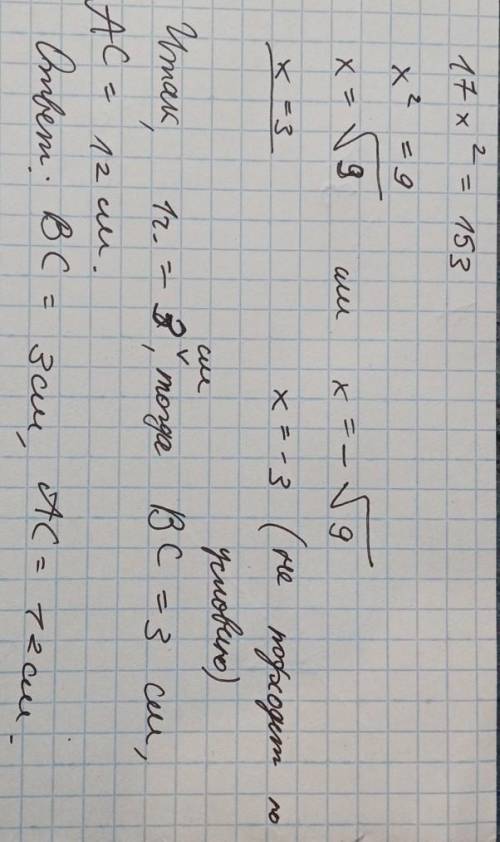 17x² = 153
x² = 9
x = √9 или x = -√9
x = 3 x = -3 (не подходит по
условию)
Итак, 1ч. = 3 см, тогда BC = 3 см,
AC = 12 см.
Ответ: BC = 3 см, AC = 12 см.